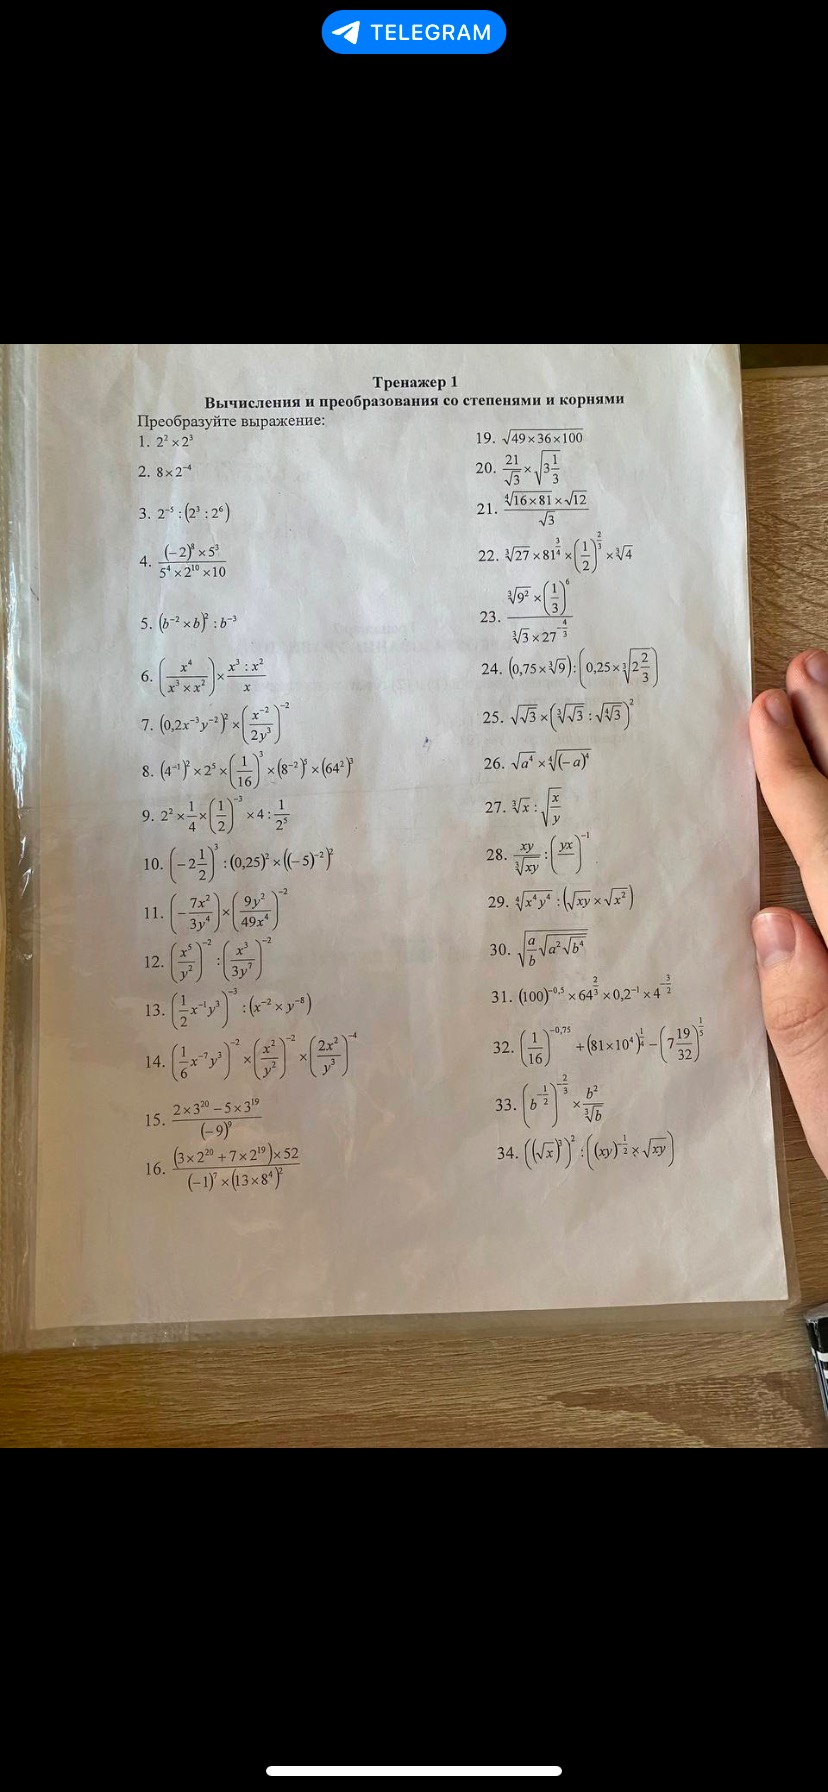 TELEGRAM
Тренажер 1
Вычисления и преобразования со степенями и корнями
Преобразуйте выражение:
1. 2² × 2³
2. 8 × 2⁻⁴
3. 2⁻⁵ : (2³ : 2⁶)
4. ((−2)⁸ × 5³) / (5⁴ × 2¹⁰ × 10)
5. (b⁻² × b)² : b⁻³
6. (x⁴ / (x³ × x²)) × (x³ : x²) / x
7. (0,2x⁻³y⁻²)² × (x⁻² / 2y³)⁻²
8. (4⁻¹)² × 2⁵ × (1/16)³ × (8⁻²)⁵ × (64²)³
9. 2² × 1/4 × (1/2)⁻³ × 4 : 1/2⁵
10. (−2 1/2)³ : (0,25)² × ((−5)⁻²)²
11. (−7x² / 3y⁴) × (9y² / 49x⁴)⁻²
12. (x⁵ / y²)⁻² : (x³ / 3y⁷)⁻²
13. (1/2 x⁻¹y³)⁻³ : (x⁻² × y⁻⁸)
14. (1/6 x⁻⁷y³)⁻² × (x² / y²)⁻² × (2x² / y³)⁻⁴
15. (2 × 3²⁰ − 5 × 3¹⁹) / (−9)⁹
16. ((3 × 2²⁰ + 7 × 2¹⁹) × 52) / ((−1)⁷ × (13 × 8⁴)²)
19. √(49 × 36 × 100)
20. 21/√3 × √(3 1/3)
21. (⁴√(16 × 81) × √12) / √3
22. ³√27 × 81^(3/4) × (1/2)^(2/3) × ³√4
23. (³√9² × (1/3)⁶) / (³√3 × 27^(−4/3))
24. (0,75 × ³√9) : (0,25 × ³√(2 2/3))
25. √√3 × (³√√3 : √⁴√3)²
26. √a⁴ × ⁴√(−a)⁴
27. ³√x : √(x/y)
28. xy / ³√xy : (yx / )⁻¹
29. ⁴√(x⁴y⁴) : (√xy × √x²)
30. √(a/b √(a²√b⁴))
31. (100)^(−0,5) × 64^(2/3) × 0,2⁻¹ × 4^(−3/2)
32. (1/16)^(−0,75) + (81×10⁴)^(1/4) − (7 19/32)^(1/5)
33. (b^(−1/2))^(−2/3) × b² / ³√b
34. ((√x)³)² : ((xy)^(−1/2) × √xy)